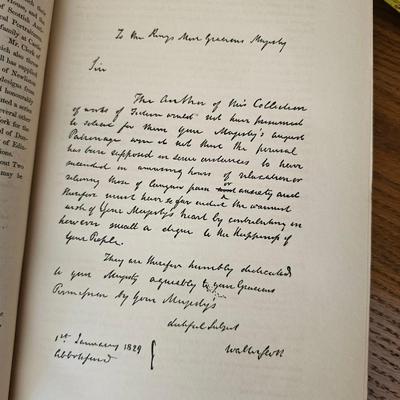 To the Kings Most Gracious Majesty
Sir
The author of this Collection
of works of Fiction would not have presumed
to solicit for them your Majesty's august
Patronage were it not that the perusal
has been supposed in some instances to have
succeeded in amusing hours of relaxation or
relieving those of languor pain or anxiety and
therefore must have so far aided the warmest
wish of your Majesty's heart by contributing in
however small a degree to the happiness of
your People.
They are therefore humbly dedicated
to your Majesty agreeably to your Gracious
Permission by your Majesty's
dutiful Subject
Walter Scott
1st January 1829
Abbotsford